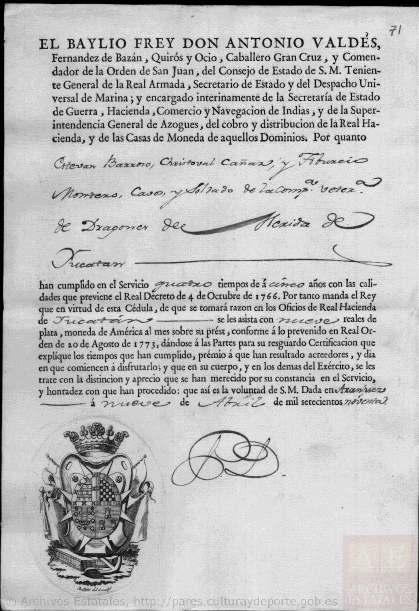 71
EL BAYLIO FREY DON ANTONIO VALDÉS,
Fernandez de Bazán, Quirós y Ocio, Caballero Gran Cruz, y Comen-
dador de la Orden de San Juan, del Consejo de Estado de S. M. Tenien-
te General de la Real Armada, Secretario de Estado y del Despacho Uni-
versal de Marina; y encargado interinamente de la Secretaría de Estado
de Guerra, Hacienda, Comercio y Navegacion de Indias, y de la Super-
intendencia General de Azogues, del cobro y distribucion de la Real Ha-
cienda, y de las Casas de Moneda de aquellos Dominios. Por quanto
Estevan Barroso, Christoval Cañas, y Tiburcio
Montero, Cavos, y Soldado de la Comp.ª veter.ª
de Dragones de Merida de
Yucatan
han cumplido en el Servicio quatro tiempos de á cinco años con las cali-
dades que previene el Real Decreto de 4 de Octubre de 1766. Por tanto manda el Rey
que en virtud de esta Cédula, de que se tomará razon en los Oficios de Real Hacienda
de Yucatán se les asista con nueve reales de
plata, moneda de América al mes sobre su prést, conforme á lo prevenido en Real Or-
den de 20 de Agosto de 1773, dándose á las Partes para su resguardo Certificacion que
explique los tiempos que han cumplido, prémio á que han resultado acreedores, y dia
en que comiencen á disfrutarlo; y que en su cuerpo, y en los demas del Exército, se les
trate con la distincion y aprecio que se han merecido por su constancia en el Servicio,
y honradez con que han procedido: que así es la voluntad de S.M. Dada en Aranjuez
á nueve de Abril de mil setecientos noventa
© Archivos Estatales, http://pares.culturaydeporte.gob.es
AE
ARCHIVOS
ESTATALES